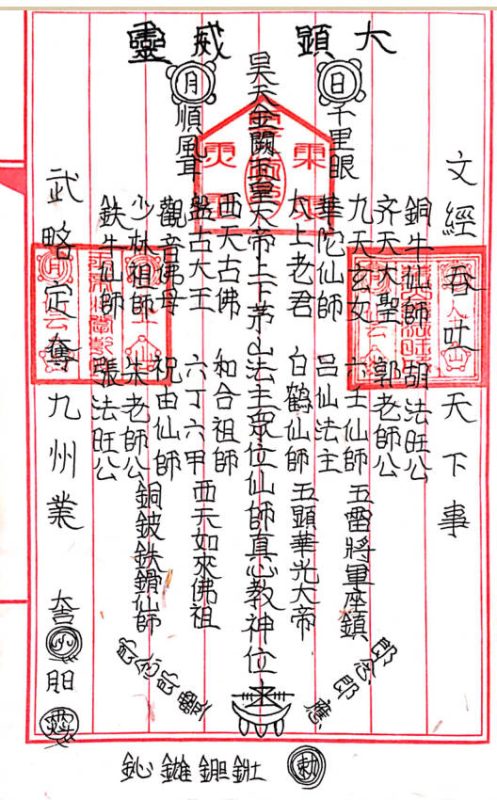 大顕威靈
文經吞吐天下事
日
千里眼
銅牛仙師 胡法旺公
齊天大聖 郭老師公
九天玄女 六壬仙師 五雷將軍座鎮
華陀仙師 呂仙法主
太上老君 白鶴仙師 五顕華光大帝
昊天金闕皇大帝二下茅山法主眾位仙師真心教神位
西天古佛 和合祖師
盤古大王 六丁六甲 西天如來佛祖
觀音佛母 祝由仙師
少林祖師 朱老師公 銅鈸鉄仙師
鉄牛仙師 張法旺公
月
順風耳
武略定奪九州業
勅